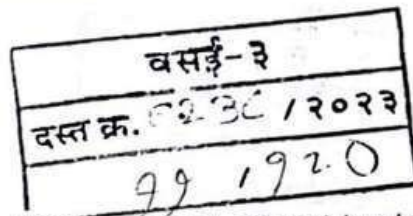 वसई-३
दस्त क्र. /२०२३
११ /१२०